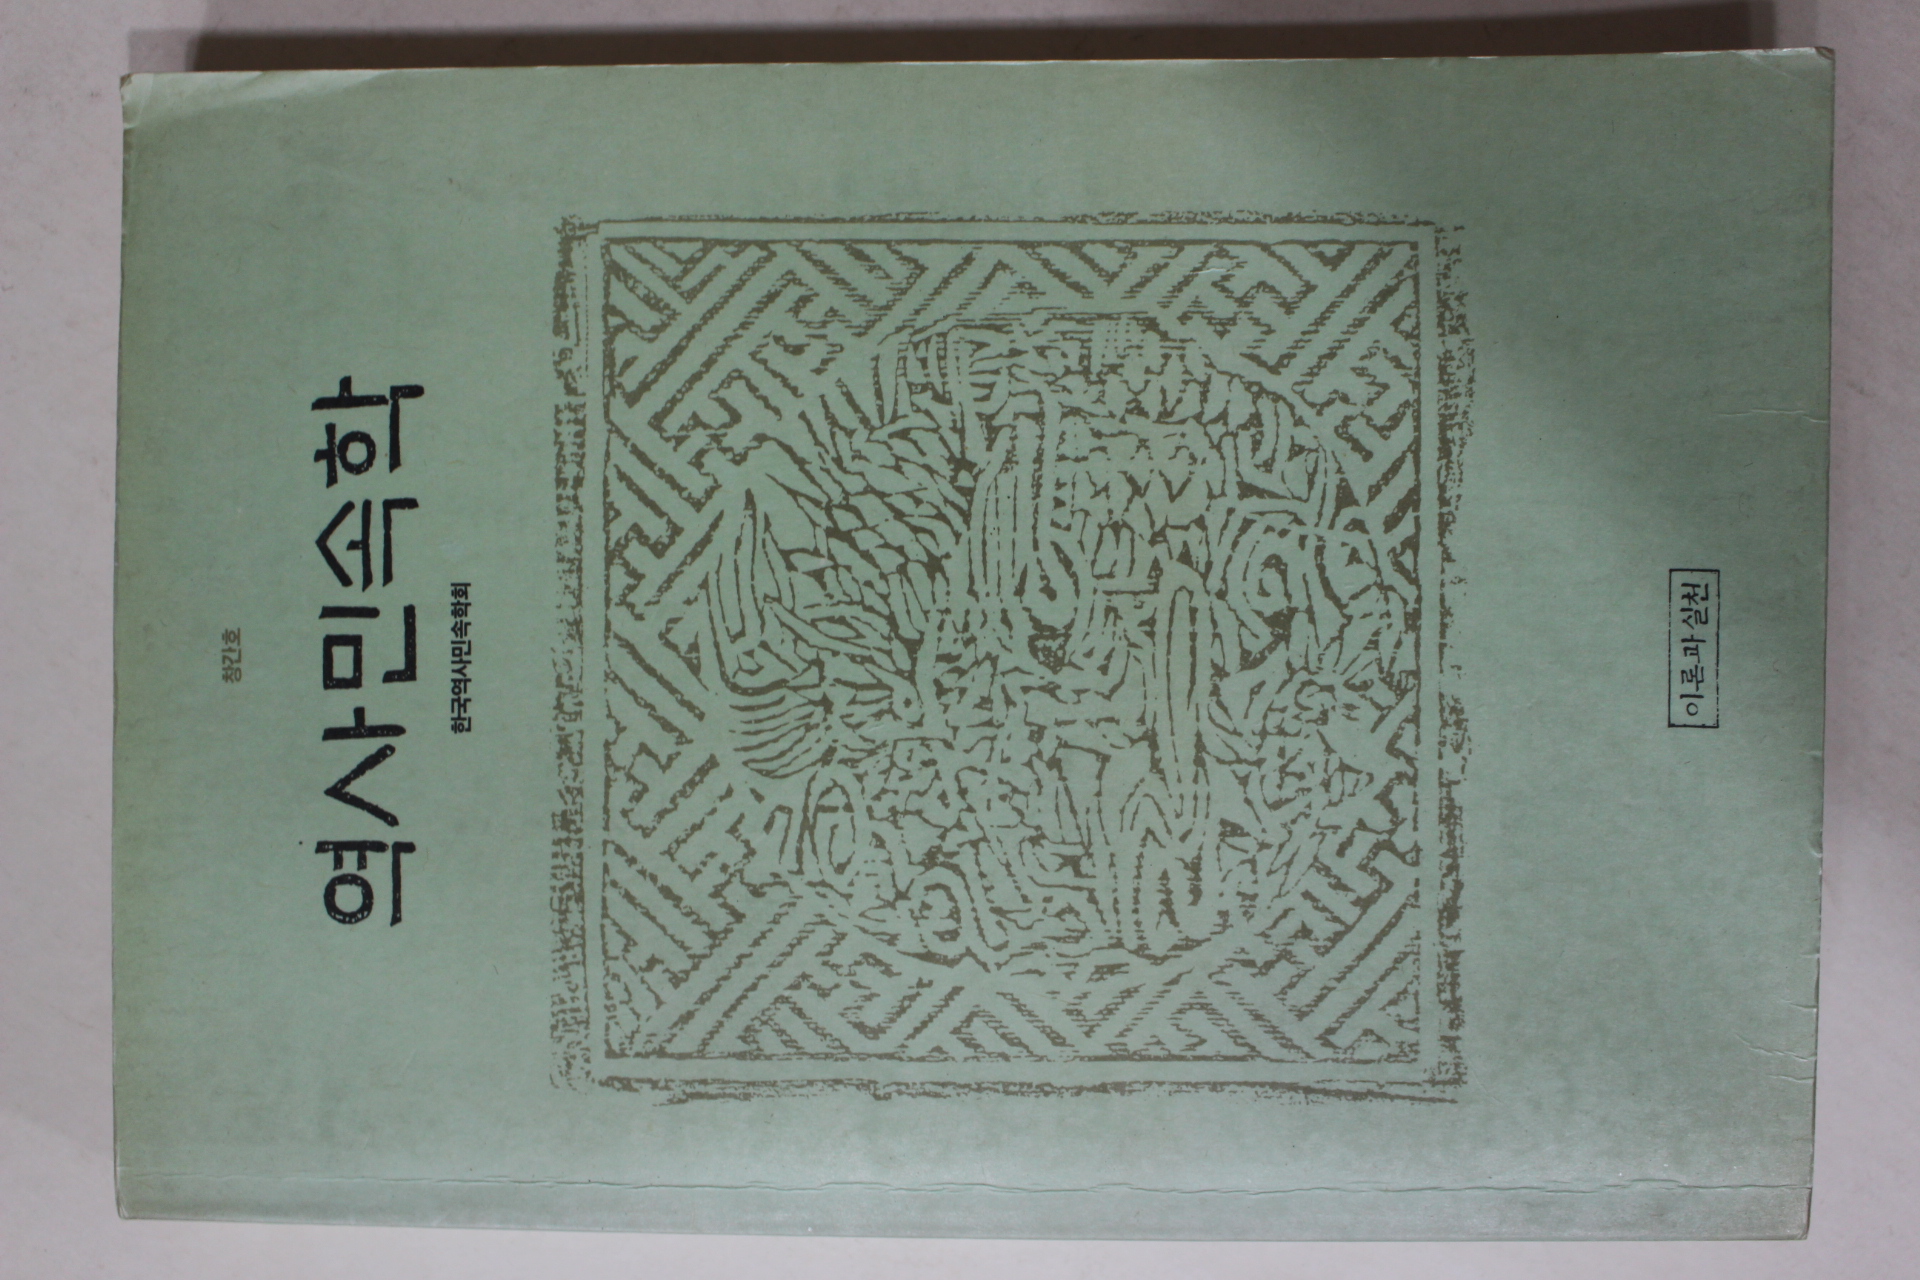 창간호
역사민속학
한국역사민속학회
이론과실천